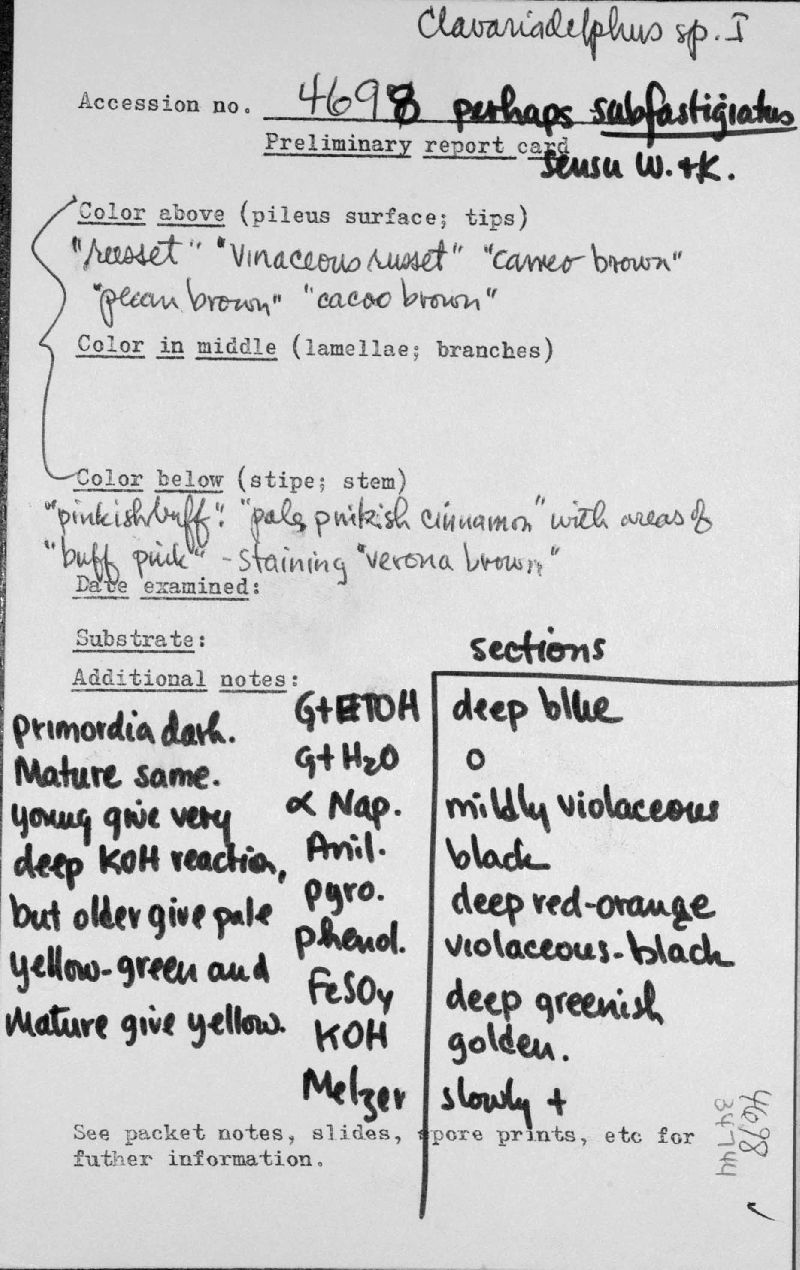 Clavariadelphus sp. I
Accession no. 4698 perhaps subfastigiatus
Preliminary report card sensu W. + K.
Color above (pileus surface; tips)
"russet" "vinaceous russet" "cameo brown"
"pecan brown" "cacao brown"
Color in middle (lamellae; branches)
Color below (stipe; stem)
"pinkish buff". "pale pinkish cinnamon" with areas of
"buff pink" - staining "verona brown"
Date examined:
Substrate:
sections
Additional notes:
primordia dark.
Mature same.
young give very
deep KOH reaction,
but older give pale
yellow-green and
Mature give yellow.
G+ETOH deep blue
G+H2O o
α Nap. mildly violaceous
Anil. black
pyro. deep red-orange
phenol. violaceous-black
FeSO4 deep greenish
KOH golden.
Melzer slowly +
See packet notes, slides, spore prints, etc for
futher information.
4698
34744